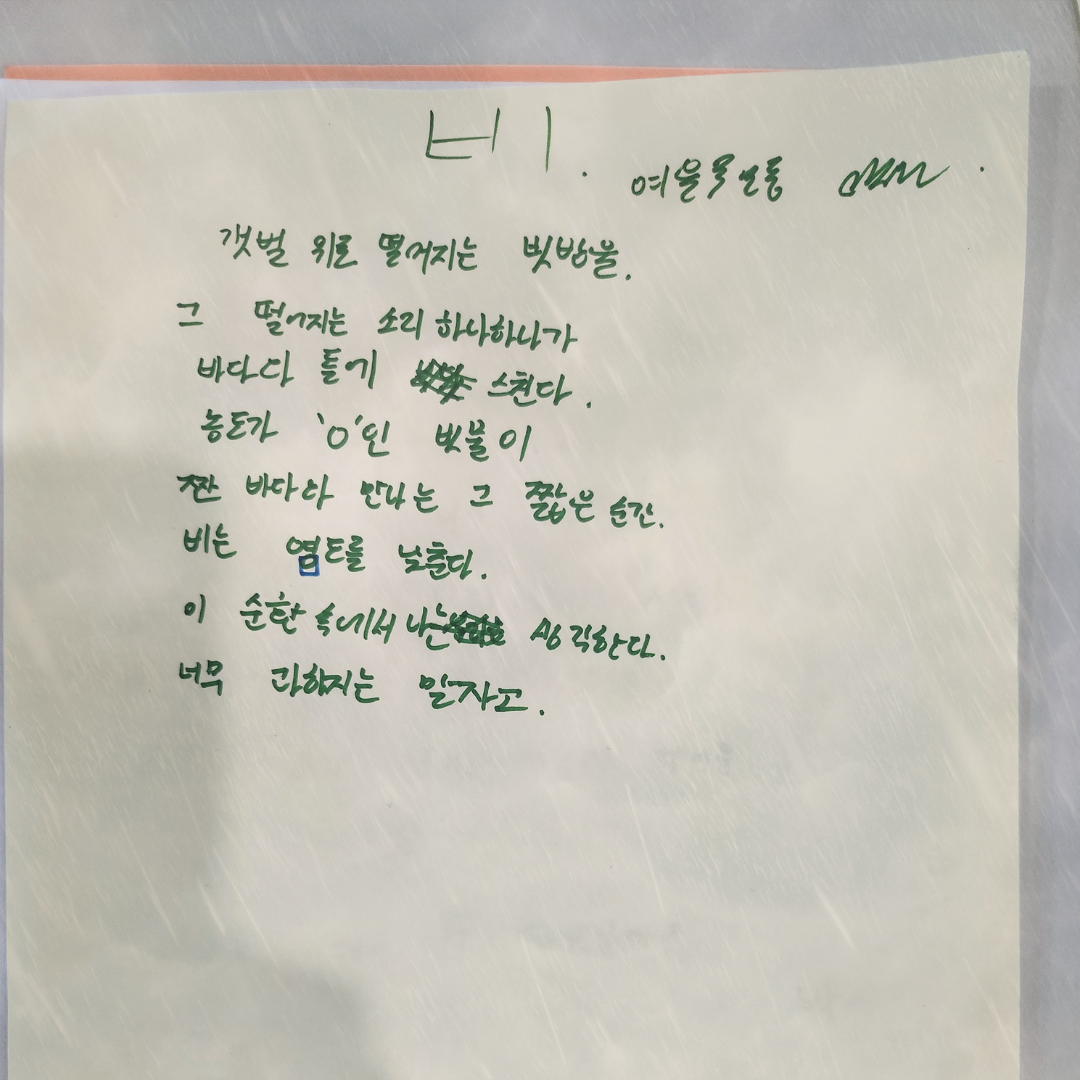 비.
여울목 보통
갯벌 위로 떨어지는 빗방울.
그 떨어지는 소리 하나하나가
바다다 틀기 스친다.
농도가 '0'인 빗물이
짠 바다와 만나는 그 짧은 순간.
비는 염도를 낮춘다.
이 순환 속에서 나는 생각한다.
너무 과해지는 말자고.